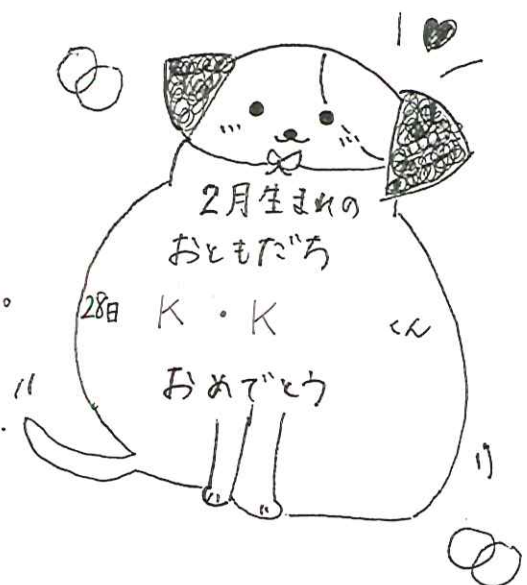 2月生まれの
おともだち
28日 K・K くん
おめでとう